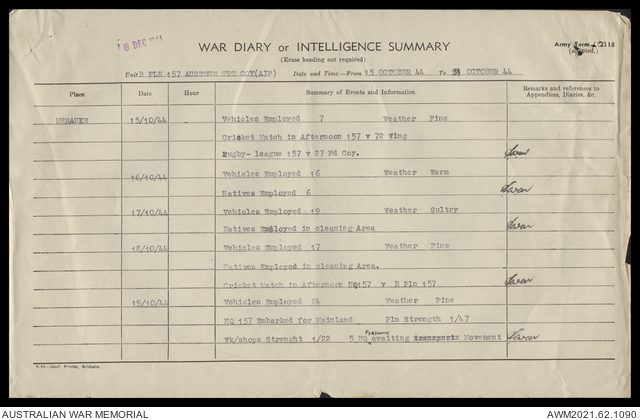 16 DEC 1944
WAR DIARY or INTELLIGENCE SUMMARY
Army Form C2118
(Erase heading not required)
(adapted.)
Unit B PLN 157 AUSTGEN TPT COY(AIF) Date and Time.—From 15 OCTOBER 44 To 31 OCTOBER 44
Place Date Hour Summary of Events and Information Remarks and references to Appendices, Diaries, &c.
MERAUKE 15/10/44 Vehicles Employed 7 Weather Fine
Cricket Match in Afternoon 157 v 72 Wing
Rugby-league 157 v 27 Fd Coy.
16/10/44 Vehicles Employed 16 Weather Warm
Natives Employed 6
17/10/44 Vehicles Employed 19 Weather Sultry
Natives Employed in cleaning Area
18/10/44 Vehicles Employed 17 Weather Fine
Natives Employed in cleaning Area.
Cricket Match in Afternoon HQ157 v B Pln 157
19/10/44 Vehicles Employed 24 Weather Fine
HQ 157 Embarked for Mainland Pln Strength 1/47
Wk/shops Strenght 1/22 5 HQ Personnel awaiting transport Movement
4-43—Govt. Printer, Brisbane.
AUSTRALIAN WAR MEMORIAL AWM2021.62.1090